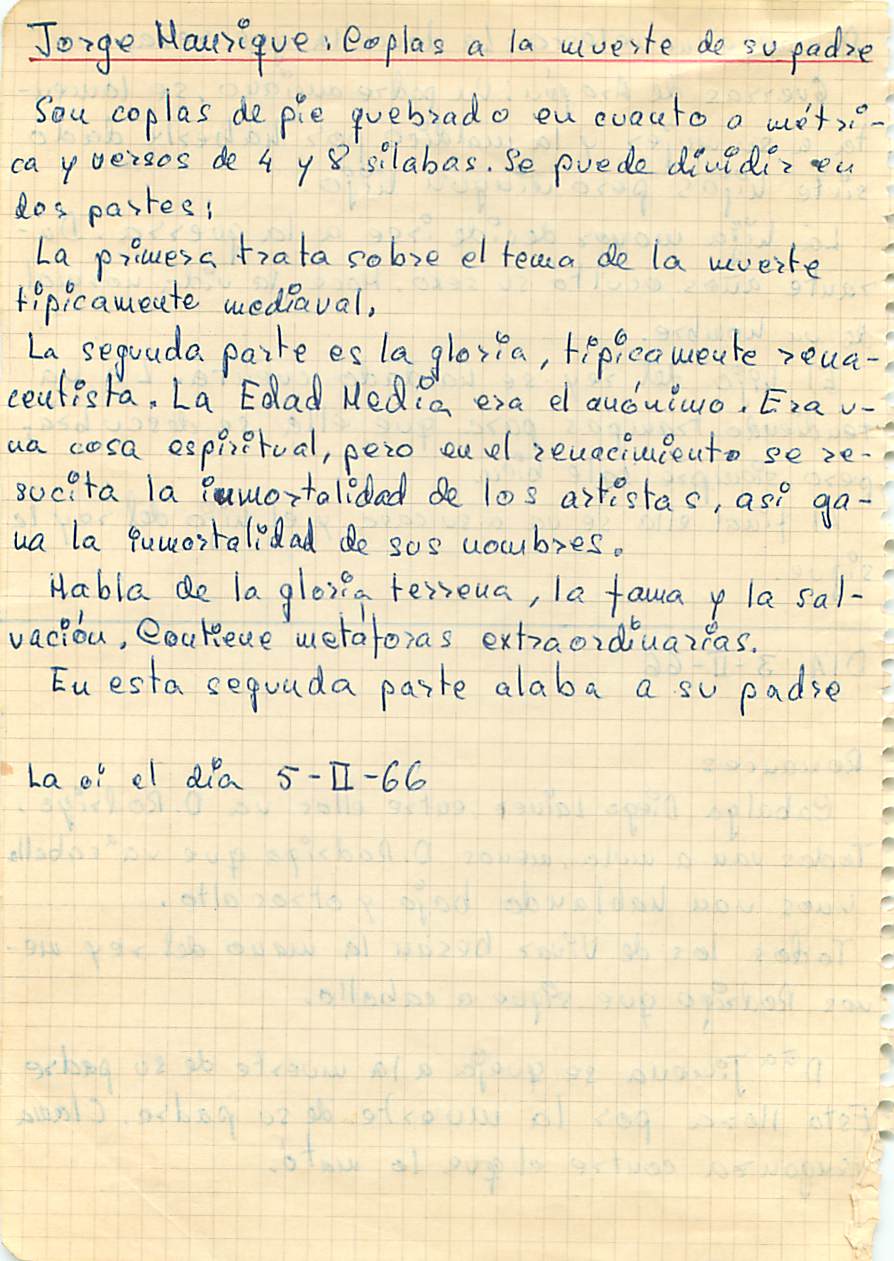 Jorge Manrique: Coplas a la muerte de su padre
Son coplas de pie quebrado en cuanto a métri-
ca y versos de 4 y 8 silabas. Se puede dividir en
dos partes:
La primera trata sobre el tema de la muerte
tipicamente mediaval.
La segunda parte es la gloria, tipicamente rena-
centista. La Edad Media era el anónimo. Era u-
na cosa espiritual, pero en el renacimiento se re-
sucita la inmortalidad de los artistas, asi ga-
na la inmortalidad de sus nombres.
Habla de la gloria terrena, la fama y la sal-
vación. Contiene metáforas extraordinarias.
En esta segunda parte alaba a su padre
La oi el dia 5-II-66